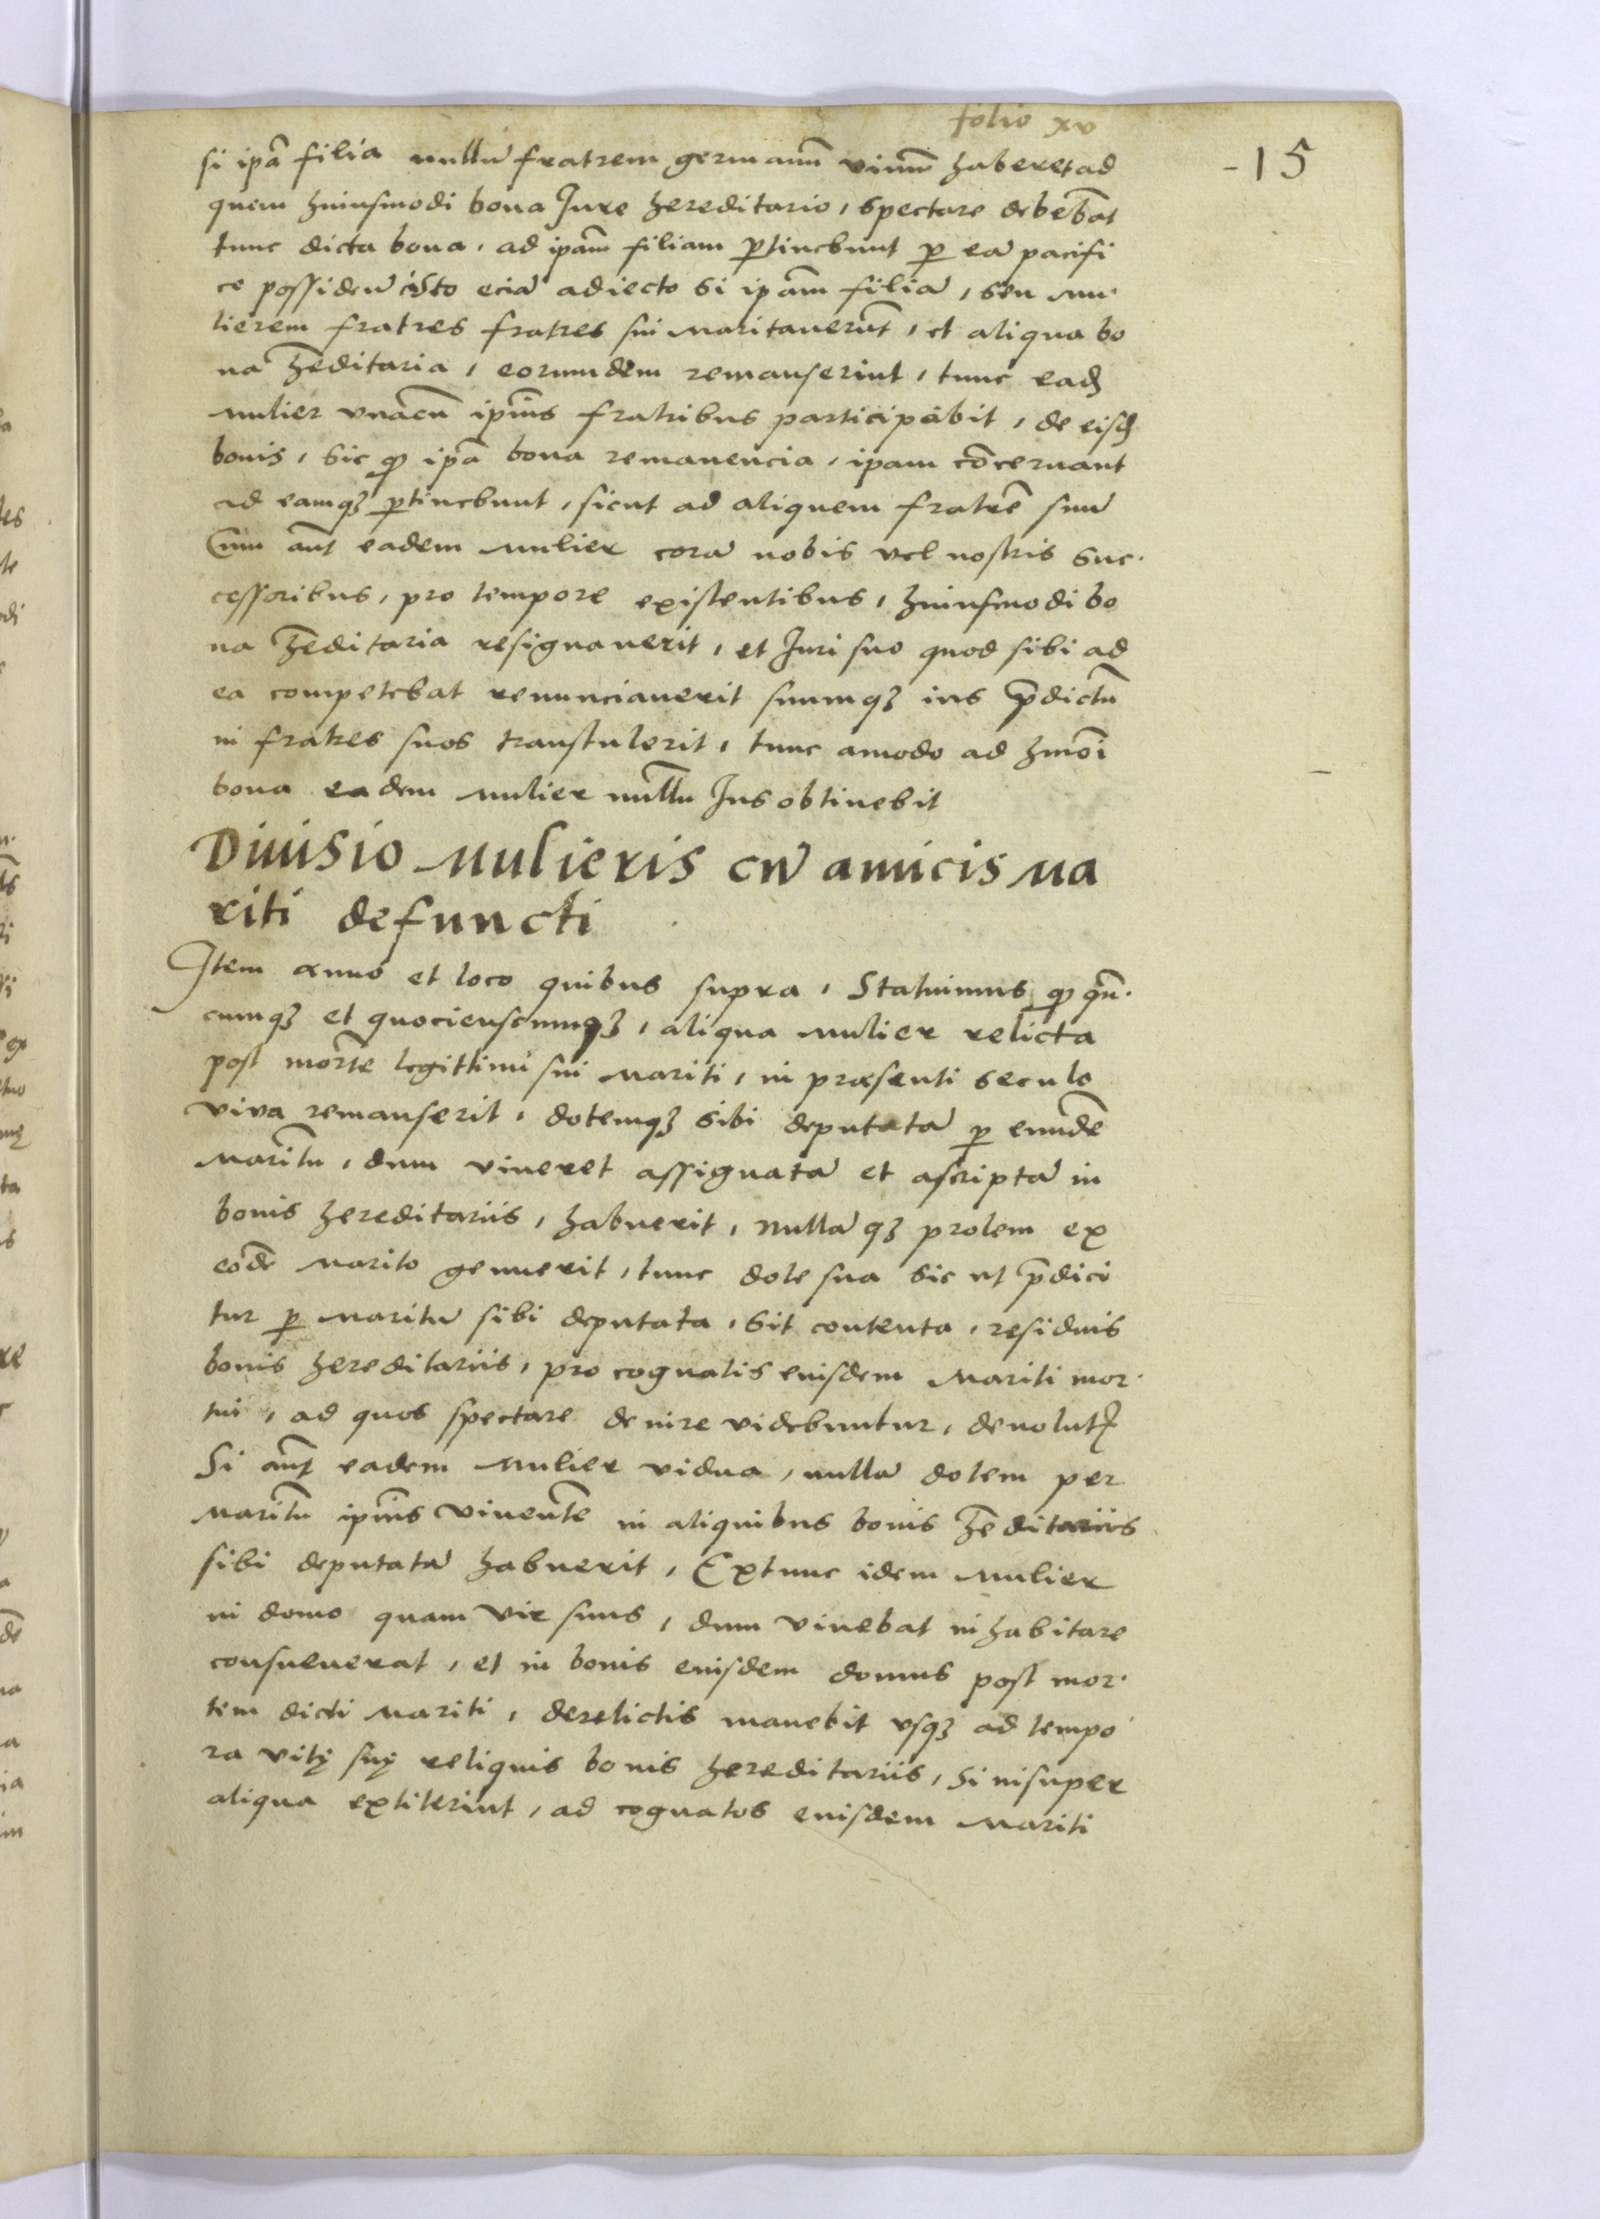 folio xv
- 15
si ipā filia nullū fratrem germanū vivūm haberet ad
quem huiusmodi bona Jure hereditario, spectare debebāt
tunc dicta bona, ad ipām filiam ꝑtinebunt ꝑ eā pacifi
ce possiden isto eciā adiecto si ipām filiā, seu mu
lierem fratres fratres sui maritaverūt, et aliqua bo
na h̄editaria, eorumdem remanserint, tunc eadꝫ
mulier vnacū ipīus fratribus participabit, de eisdꝫ
bonis, sic ꝙ ipā bona remanencia, ipam cōcernant
ad eamqꝫ ꝑtinebunt, sicut ad aliquem fratrē suū
Cum aūt eadem mulier corā nobis vel nostris suc
cessoribus, pro tempore existentibus, huiusmodi bo
na h̄editaria resignaverit, et Juri suo quod sibi ad
ea competebat renunciaverit suumqꝫ ius p̄dictū
in fratres suos transtulerit, tunc amodo ad hmōi
bona eadem mulier nullū Jus obtinebit
Divisio Mulieris cū amicis ma
riti defuncti
Item anno et loco quibus supra, Statuimus ꝙ qn̄
cumqꝫ et quocienscumqꝫ, aliqua mulier relicta
post mortē legittimi sui mariti, in præsenti seculo
viva remanserit, dotemqꝫ sibi deputatā ꝑ eundē
maritū, dum viveret assignatā et ascriptā in
bonis hereditariis, habuerit, nullāqꝫ prolem ex
eodē marito genuerit, tunc dote sua sic ut p̄dici
tur ꝑ maritū sibi deputata, sit contenta, residuis
bonis hereditariis, pro cognatis eiusdem mariti mor
tui, ad quos spectare de iure videbuntur, devolutꝭ
Si aūt eadem mulier vidua, nullā dotem per
maritū ipīus viventē in aliquibus bonis h̄editariis
sibi deputatā habuerit, Extunc idem mulier
in domo quam vir suus, dum vivebat inhabitare
consueverat, et in bonis eiusdem domus post mor
tem dicti mariti, derelictis manebit vsqꝫ ad tempo
ra vitę suę reliquis bonis hereditariis, si insuper
aliqua extiterint, ad cognatos eiusdem mariti